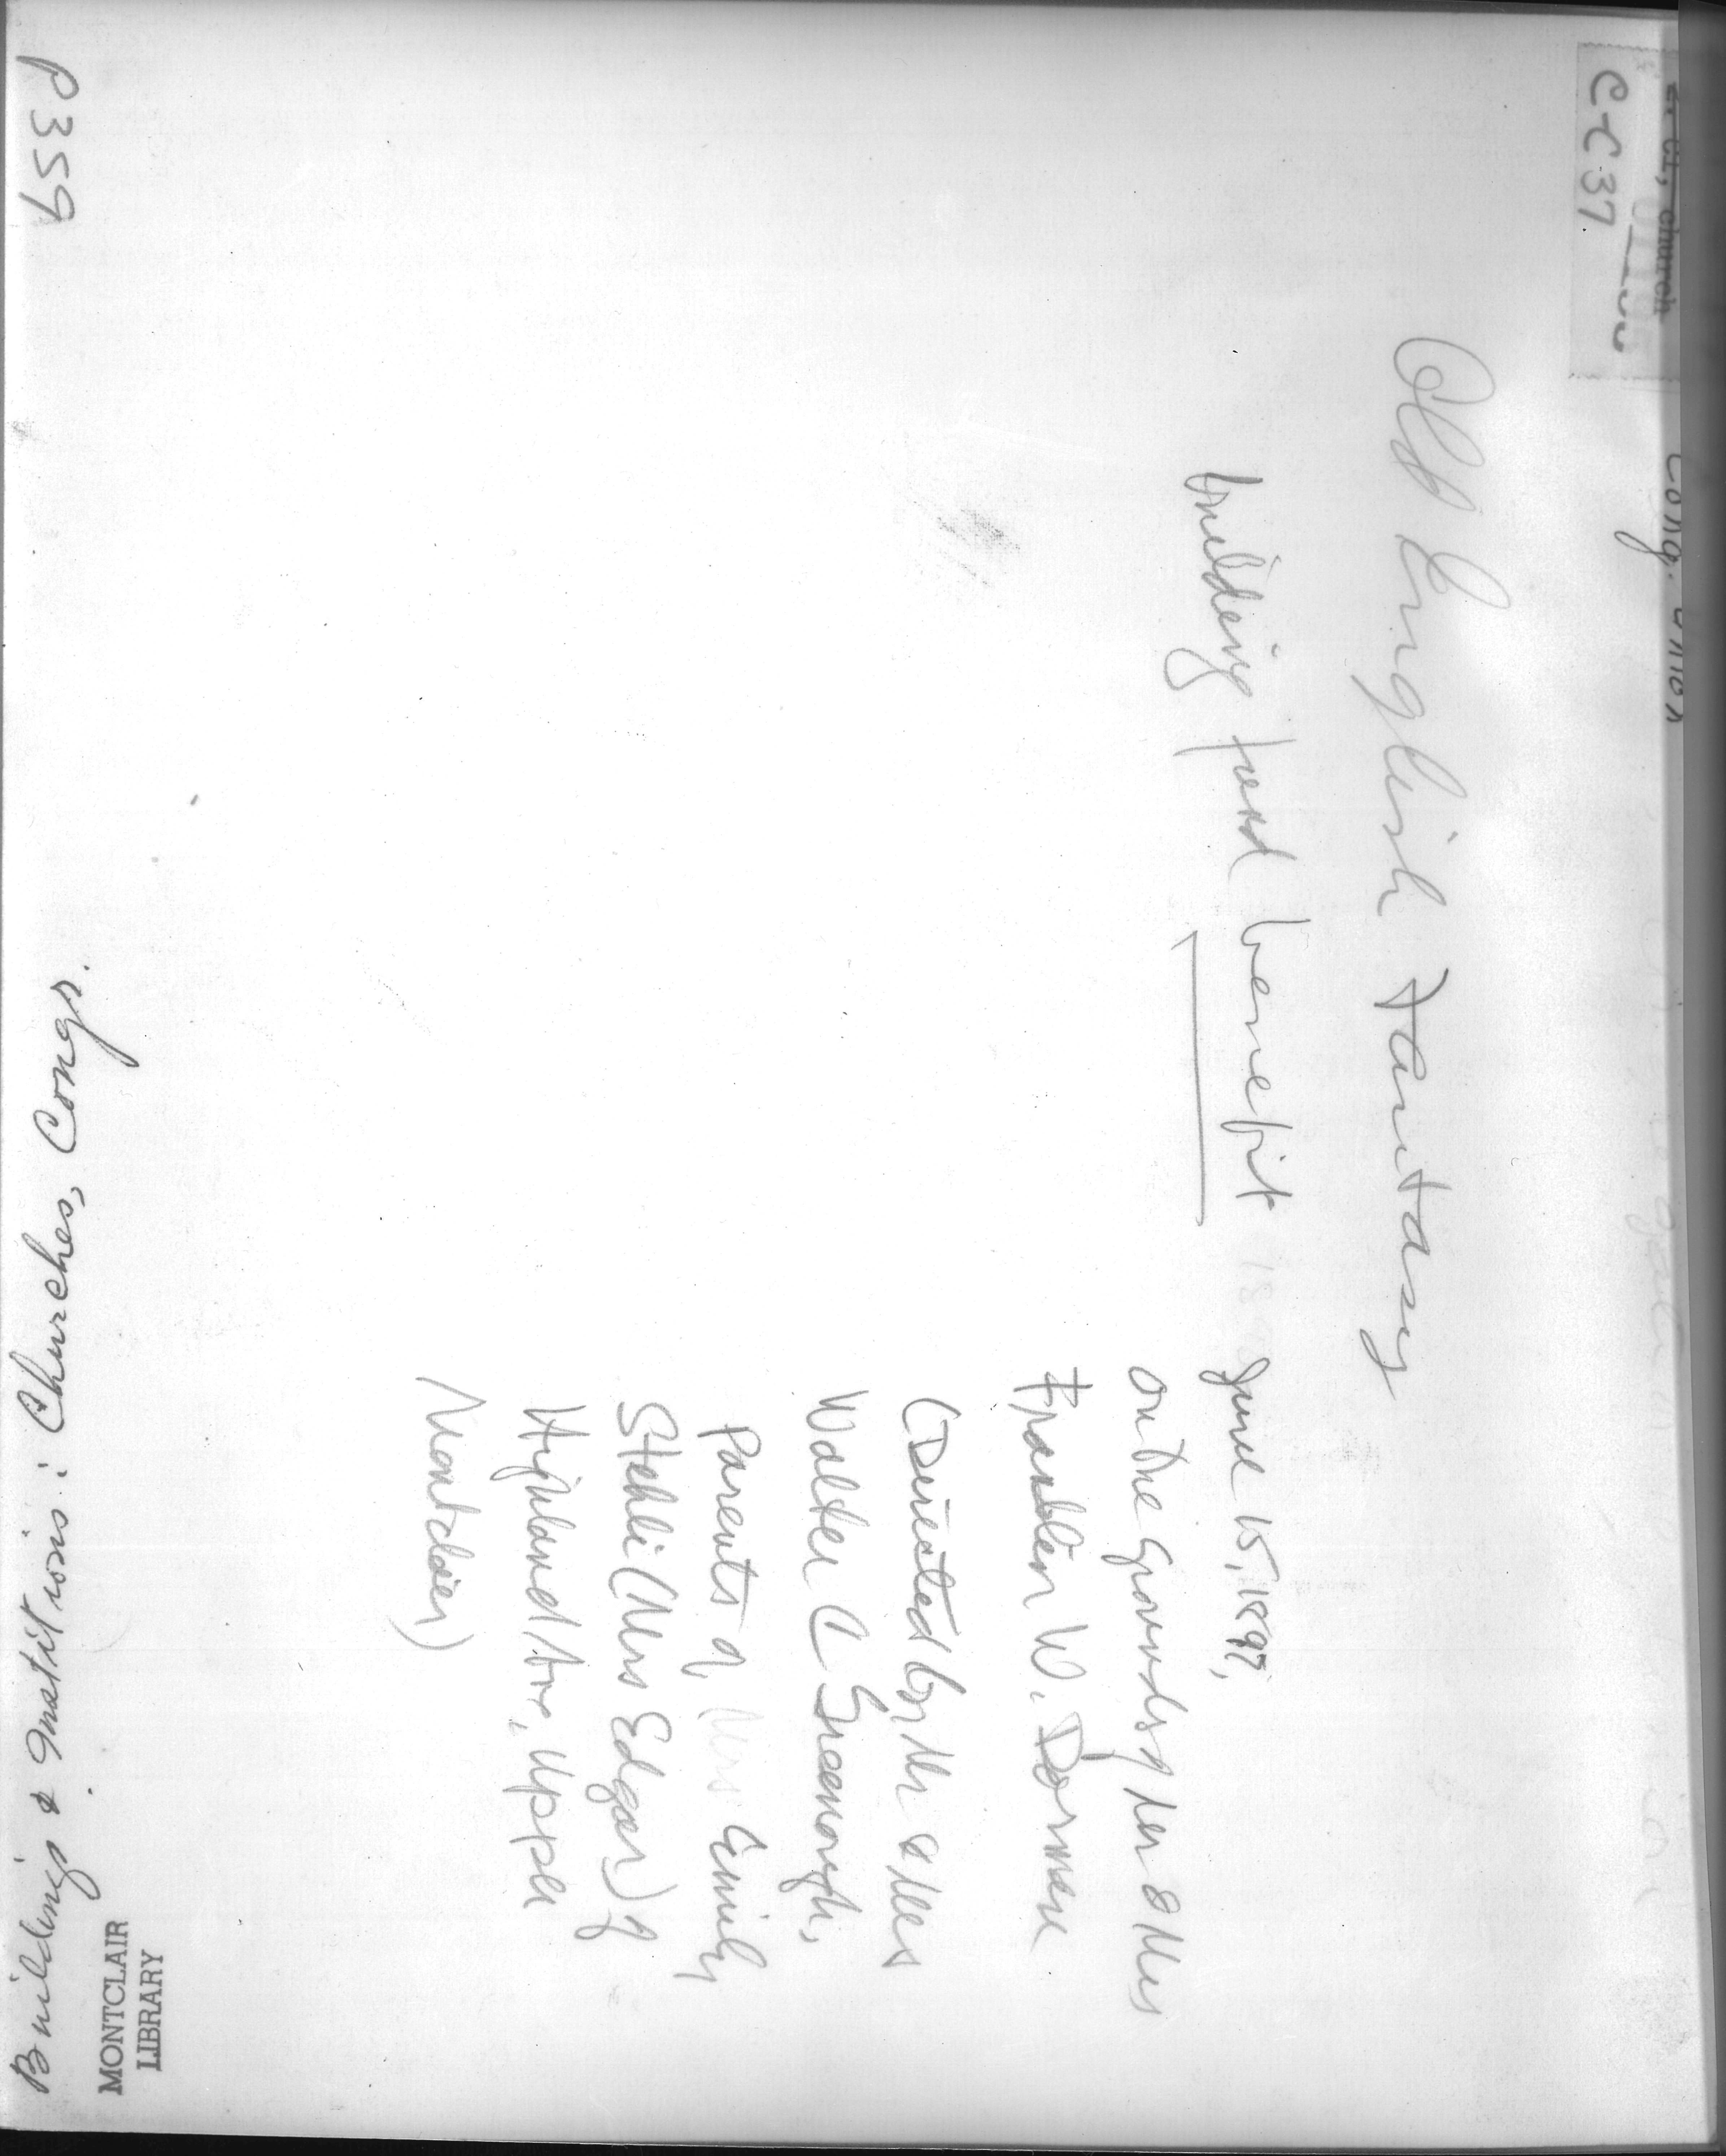 church
C-C-37
Cong. Union
Old English Fantasy
building fund benefit
June 15, 1897,
on the grounds of Mr & Mrs
Franklin W. Dorman
(Directed by Mr & Mrs
Walter C Greenough,
Parents of Mrs Emily
Stehli (Mrs Edgar) of
Highland Ave, Upper
Montclair)
P359
Buildings & Institutions: Churches, Congs.
MONTCLAIR
LIBRARY